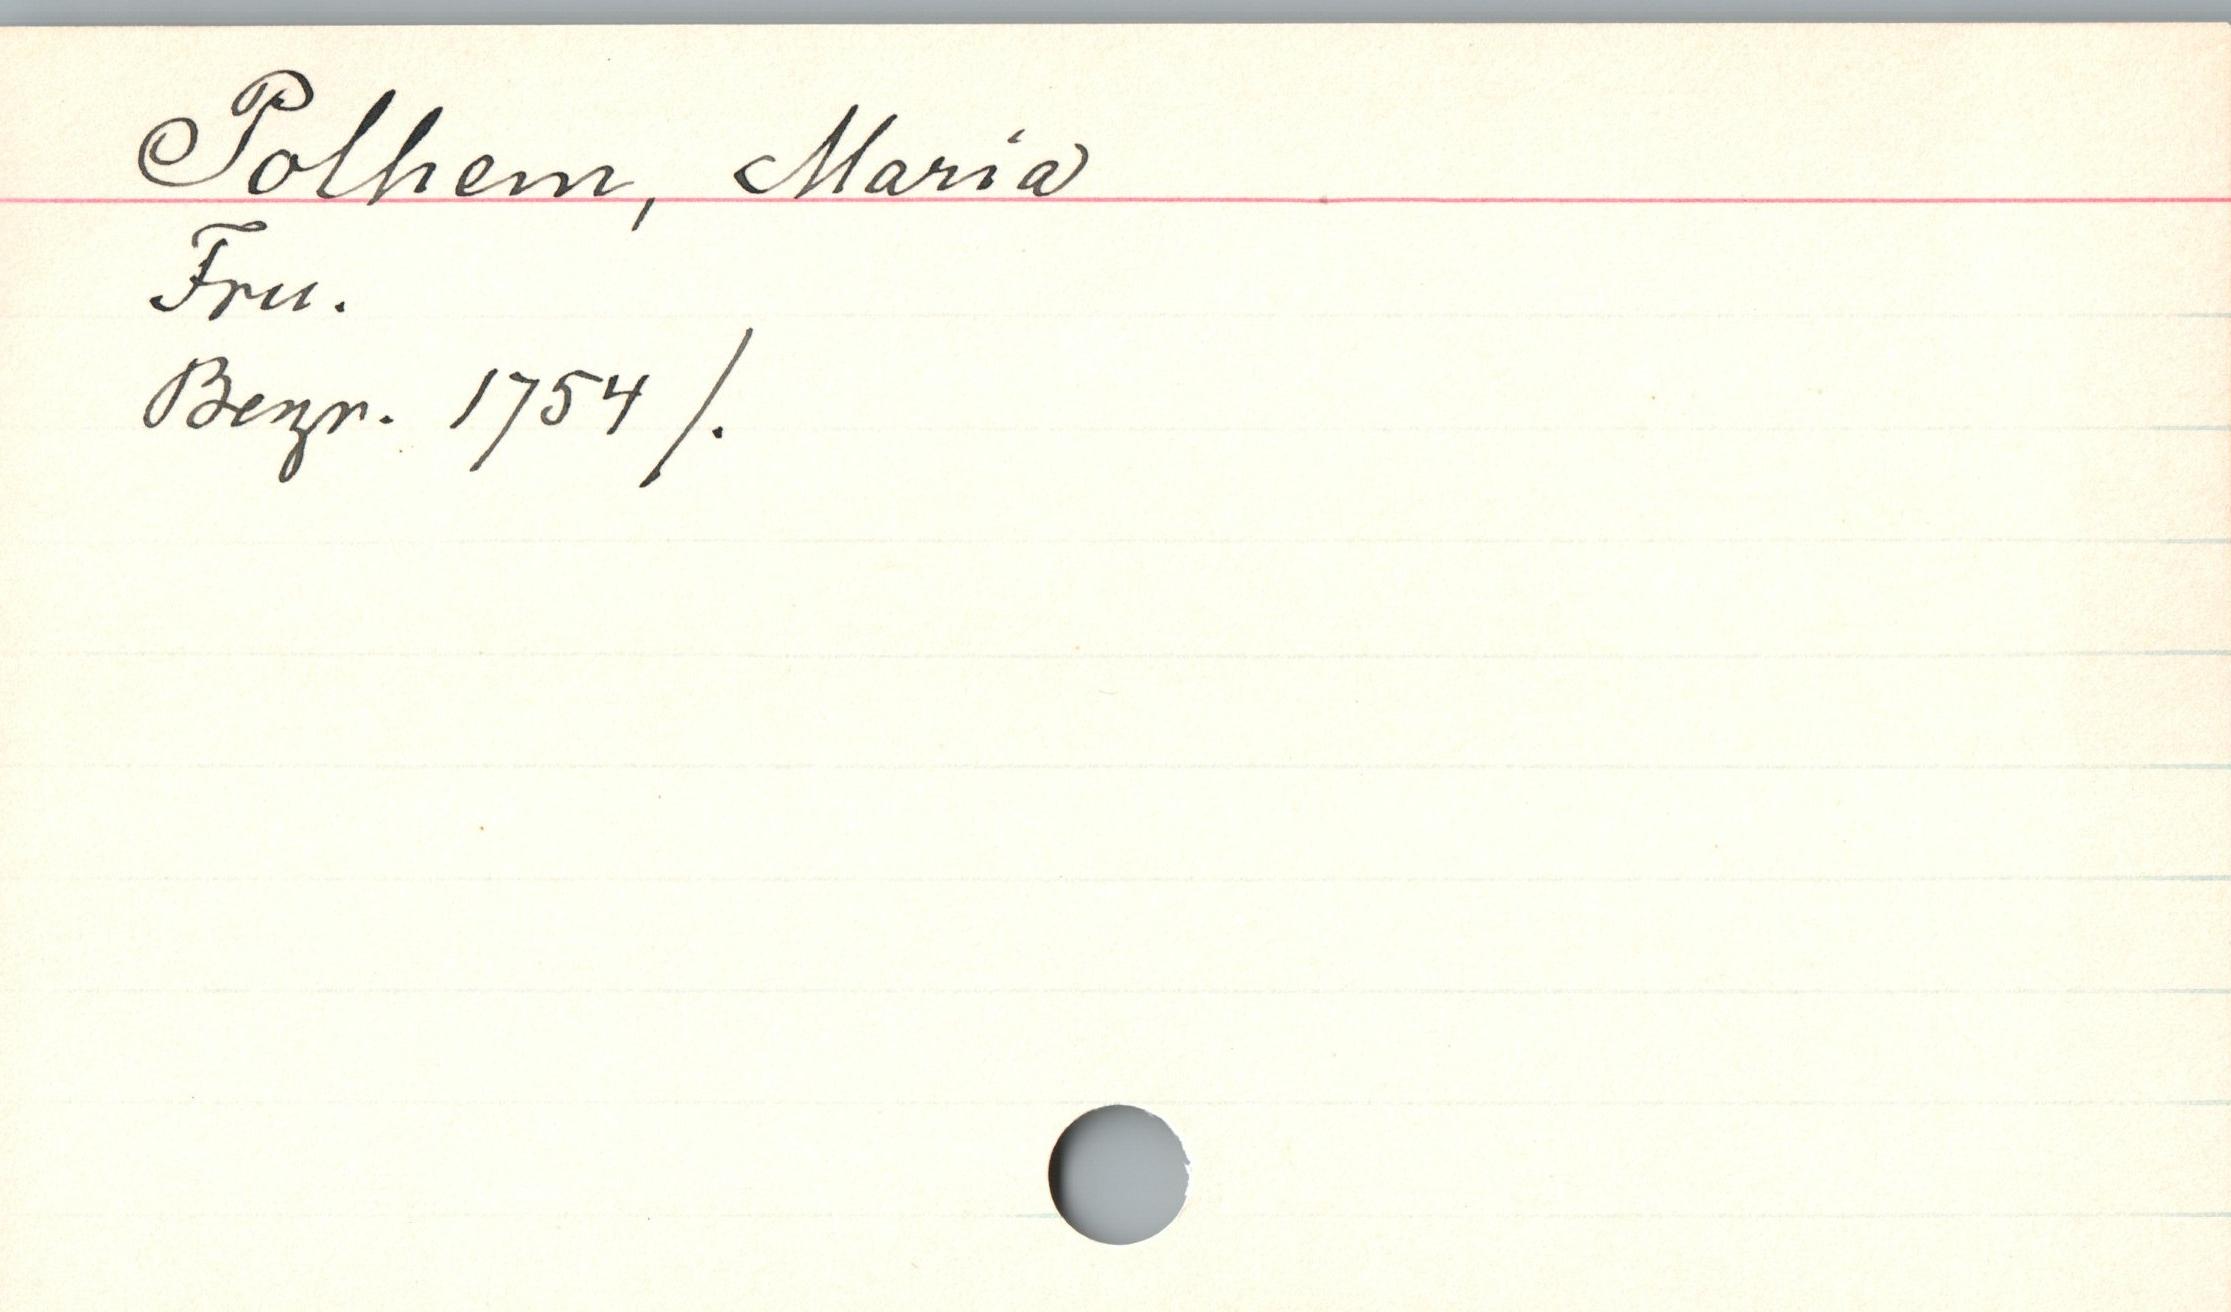 Polhem, Maria
Fru.
Begr. 1754 /.